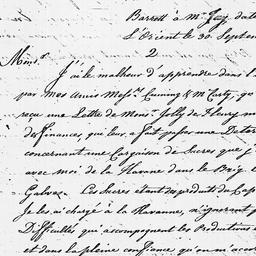 Barrett à Mr. Jay, daté
L'Orient le 30. Septem
2
Mons.r
J'ai le malheur d'apprendre dans l'
par mes Amis Mess.rs Cuming & McCarty, qu
reçu une Lettre de Mons.r Joly de Fleury m
des finances, qui leur a fait passer une Déter
concernant une Cargaison de Sucres que j'
avec moi de la Havane dans le Brig le
Galvez. Les Sucres étant des produits du Cap
Je les ai chargé à la Havanne, n'ignorant p
Difficultés qui accompagnent les Productions é
et dans la pleine confiance qu'on m'accor